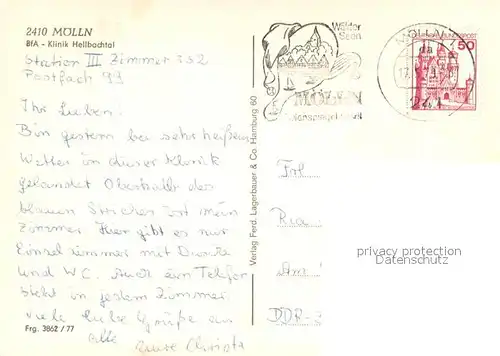 2410 MÖLLN
BfA - Klinik Hellbachtal
Station III Zimmer 352
Postfach 99
Ihr Lieben!
Bin gestern bei sehr heißem
Wetter in dieser Klinik
gelandet Oberhalb des
blauen Striches ist mein
Zimmer. Hier gibt es nur
Einzelzimmer mit Dusche
und WC. Auch ein Telefon
steht in jedem Zimmer
viele liebe Grüße an
alle Eure Christa
Frg. 3862/77
Verlag Ferd. Lagerbauer & Co. Hamburg 60
Wälder
Seen
MÖLLN
50
Frl
Ria
DDR-
privacy protection
Datenschutz